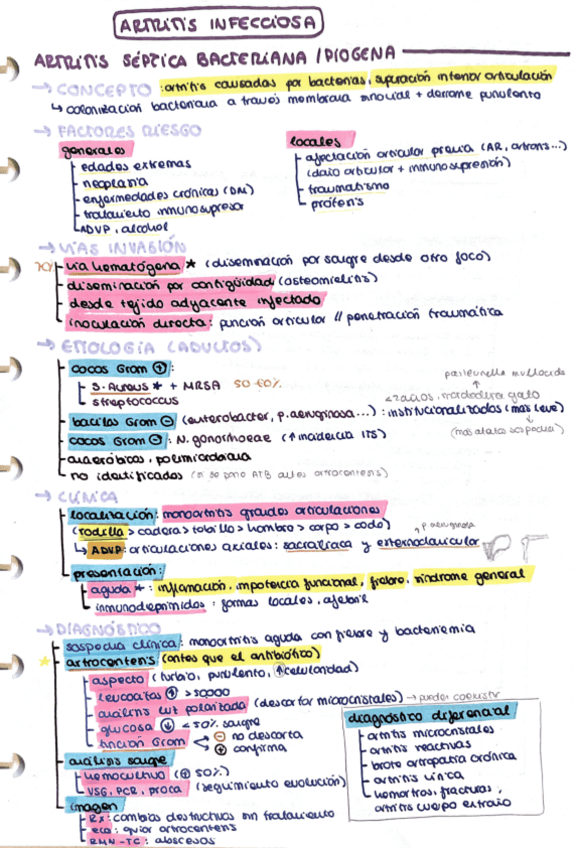 ARTRITIS INFECCIOSA
ARTRITIS SÉPTICA BACTERIANA / PIOGENA
→ CONCEPTO: artritis causadas por bacterias, supuración interior articulación
↳ colonización bacteriana a través membrana sinovial + derrame purulento
→ FACTORES RIESGO
generales
edades extremas
neoplasia
enfermedades crónicas (DM)
tratamiento inmunosupresor
ADVP, alcohol
locales
afectación articular previa (AR, artrosis...)
(daño articular + inmunosupresión)
traumatismo
prótesis
→ VÍAS INVASIÓN
vía hematógena * (diseminación por sangre desde otro foco)
diseminación por contigüidad (osteomielitis)
desde tejido adyacente infectado
inoculación directa: punción articular // penetración traumática
→ ETIOLOGÍA (ADULTOS)
cocos Gram ⊕:
S. Aureus * + MRSA 50-60%
streptococcus
pasteurella multocida
↑
mordedura gato
bacilos Gram ⊖ (enterobacter, p. aeruginosa...): institucionalizados (más leve)
cocos Gram ⊕: N. gonorrhoeae (↑ incidencia ITS)
anaeróbicos, polimicrobiana
no identificados (si se pone ATB antes artrocentesis)
→ CLÍNICA
localización: monoartritis grandes articulaciones
(rodilla > cadera > tobillo > hombro > carpo > codo)
↑ p. aeruginosa
↳ ADVP: articulaciones axiales: sacroilíaca y esternoclavicular
presentación:
aguda *: inflamación, impotencia funcional, fiebre, síndrome general
inmunodeprimidos: formas locales, afebril
→ DIAGNÓSTICO
sospecha clínica: monoartritis aguda con fiebre y bacteriemia
* artrocentesis (antes que el antibiótico)
aspecto (turbio, purulento, ↑ celularidad)
leucocitos ↑ > 50000
análisis luz polarizada (descartar microcristales) → pueden coexistir
glucosa ↓ < 50% sangre
tinción Gram ⊖ no descarta
⊕ confirma
análisis sangre
hemocultivo (⊕ 50%)
VSG, PCR, proca (seguimiento evolución)
imagen
RX: cambios destructivos sin tratamiento
eco: guiar artrocentesis
RMN-TC: abscesos
diagnóstico diferencial
artritis microcristales
artritis reactivas
brote artropatía crónica
artritis vírica
hemartros, fracturas,
artritis cuerpo extraño